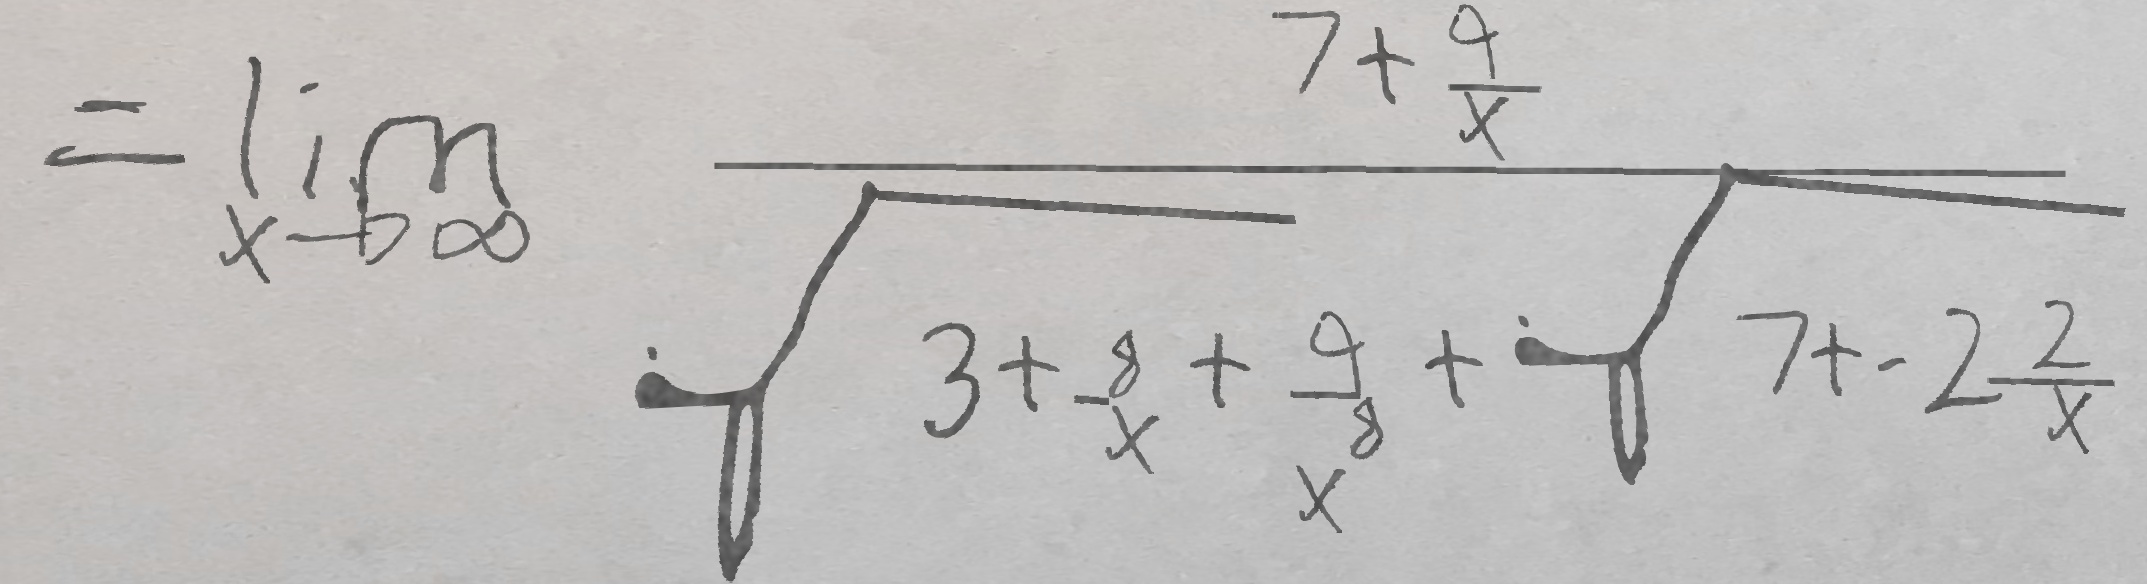 = \lim_{x \to \infty} \frac{7 + \frac{9}{x}}{\sqrt{3 + \frac{8}{x} + \frac{9}{x^8}} + \sqrt{7 + - 2 \frac{2}{x}}}